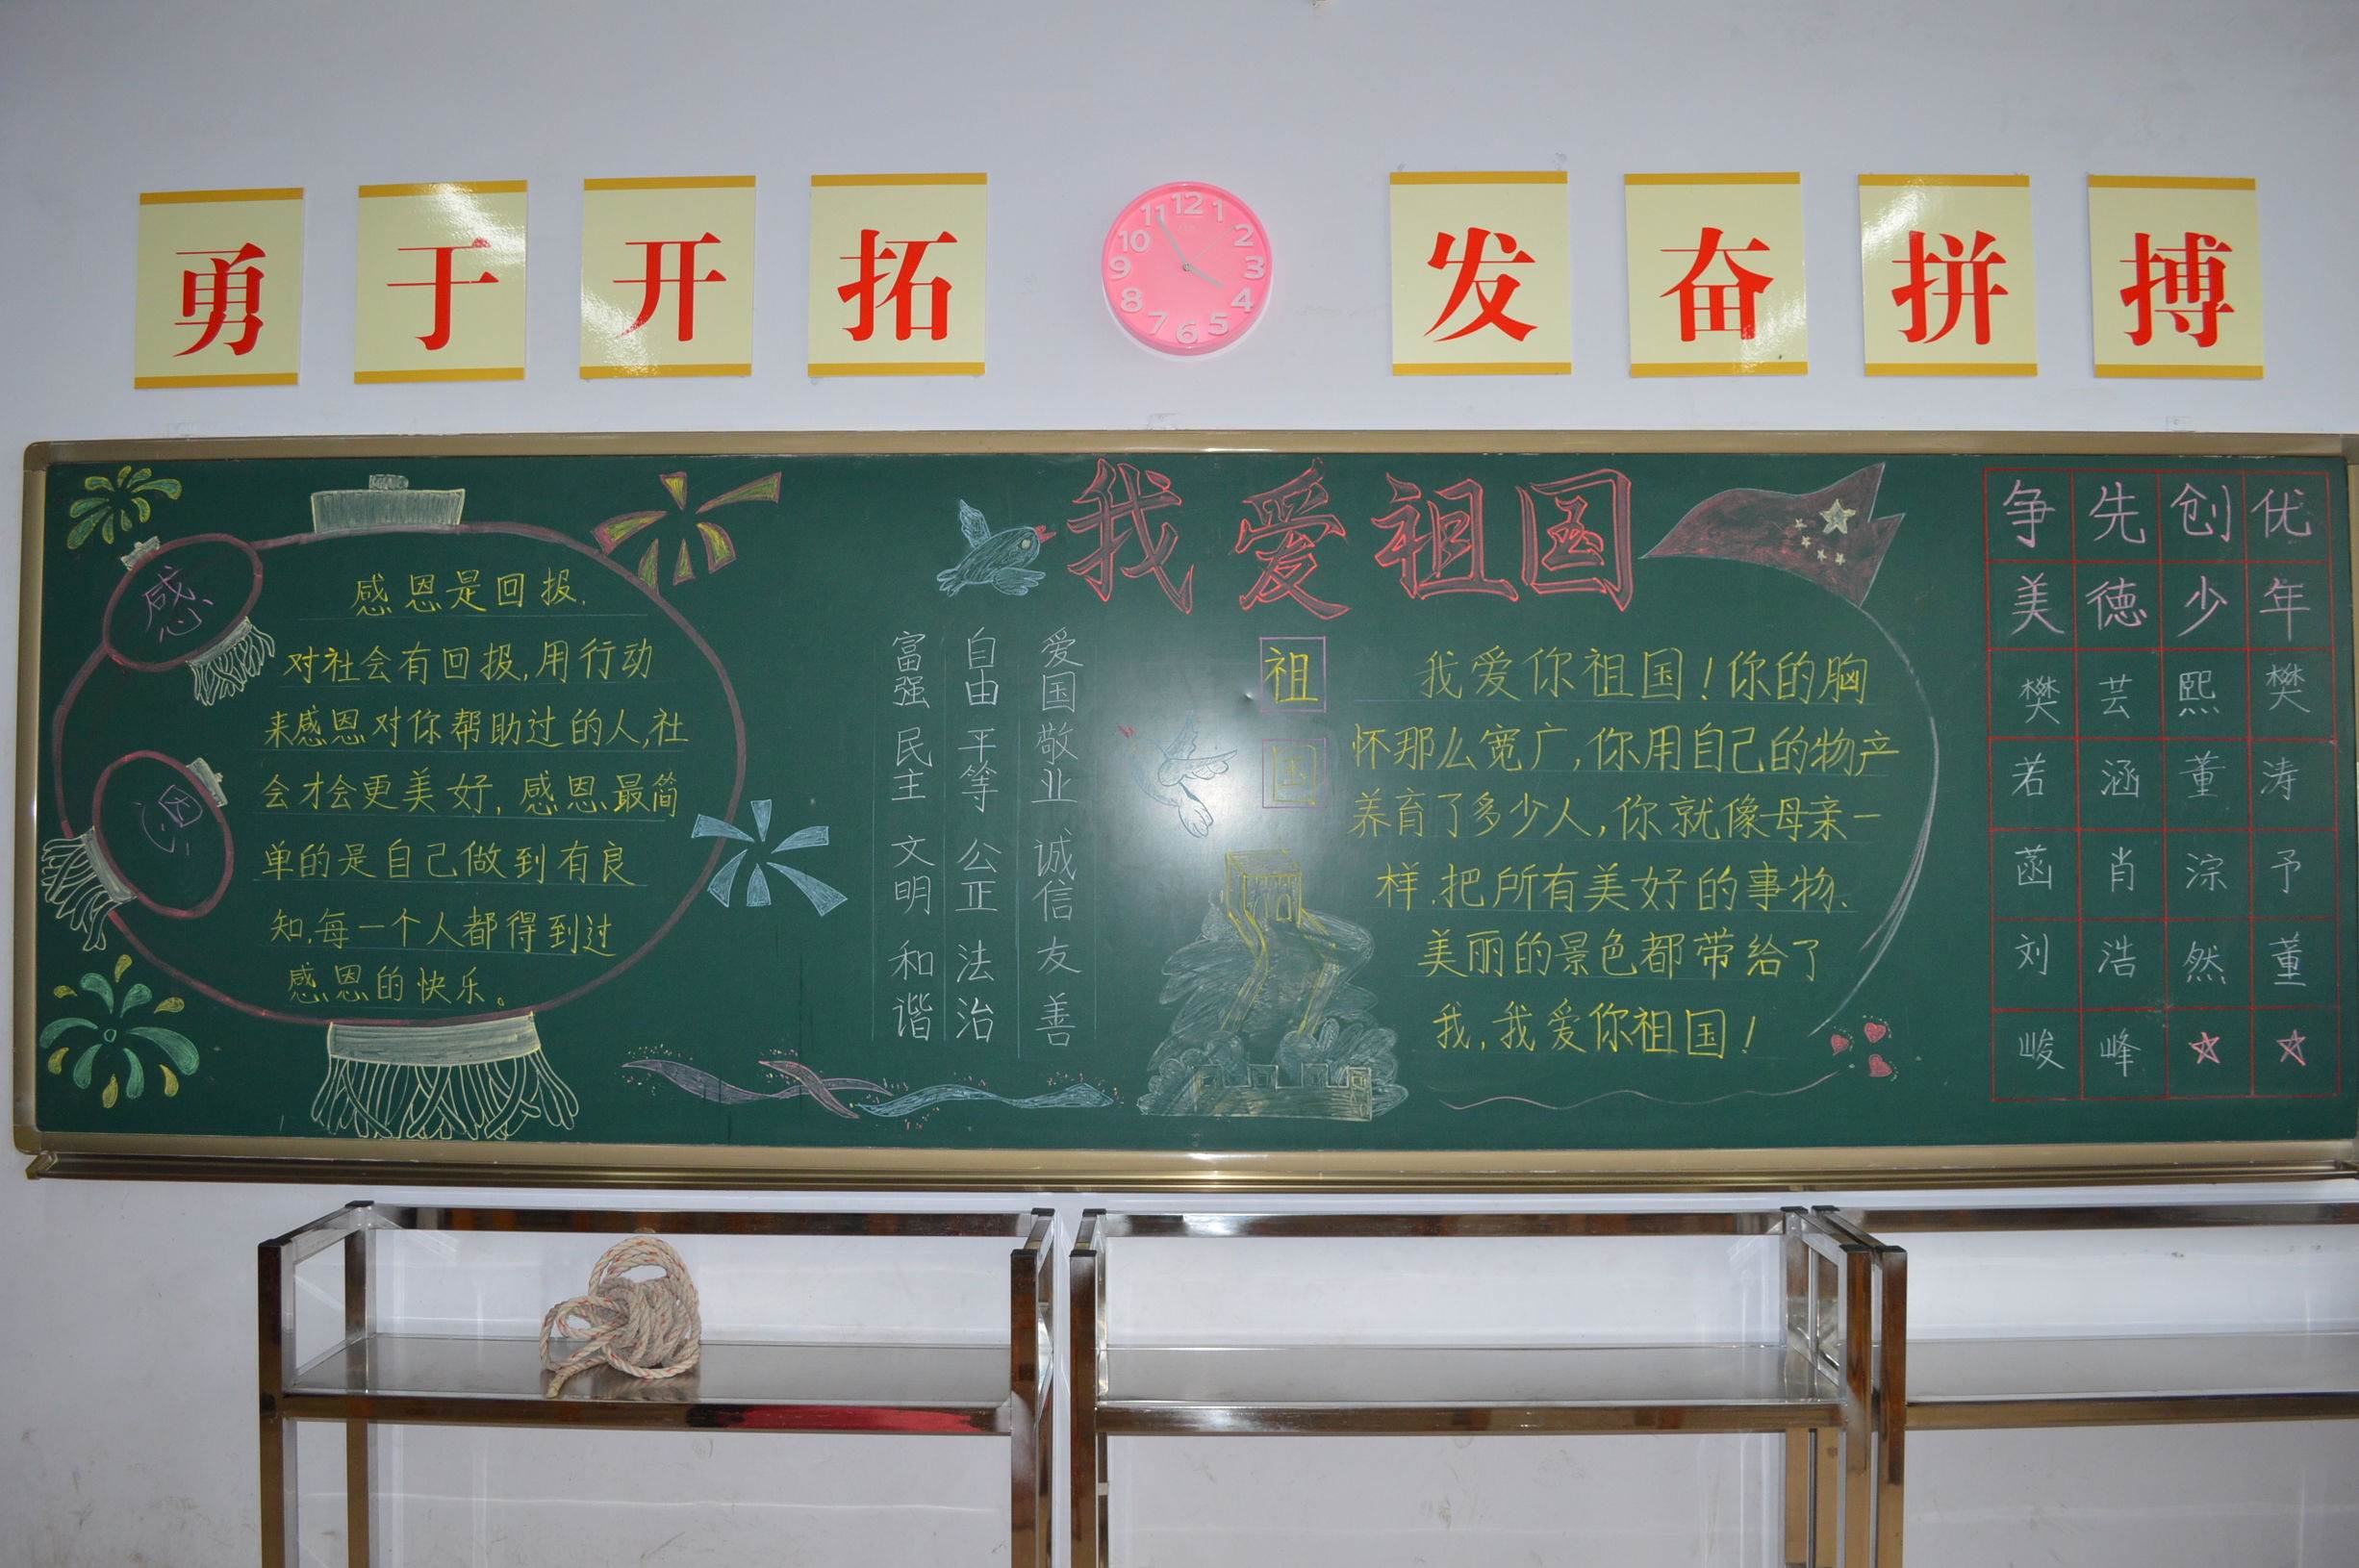 勇于开拓
12
1
2
3
4
5
6
7
8
9
10
11
发奋拼搏
感
恩
感恩是回报,
对社会有回报,用行动
来感恩对你帮助过的人,社
会才会更美好,感恩最简
单的是自己做到有良
知,每一个人都得到过
感恩的快乐。
我爱祖国
富强 民主 文明 和谐
自由 平等 公正 法治
爱国 敬业 诚信 友善
祖国
我爱你祖国!你的胸
怀那么宽广,你用自己的物产
养育了多少人,你就像母亲一
样.把所有美好的事物、
美丽的景色都带给了
我,我爱你祖国!
争先创优
美德少年
樊芸熙樊
若涵董涛
菡肖淙予
刘浩然董
峻峰